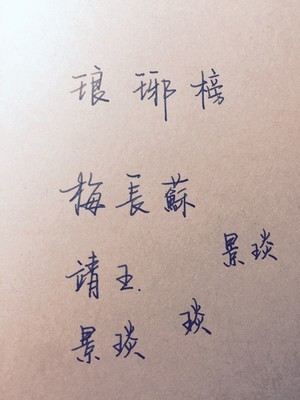 琅琊榜
梅長蘇
靖王.
景琰
景琰
琰